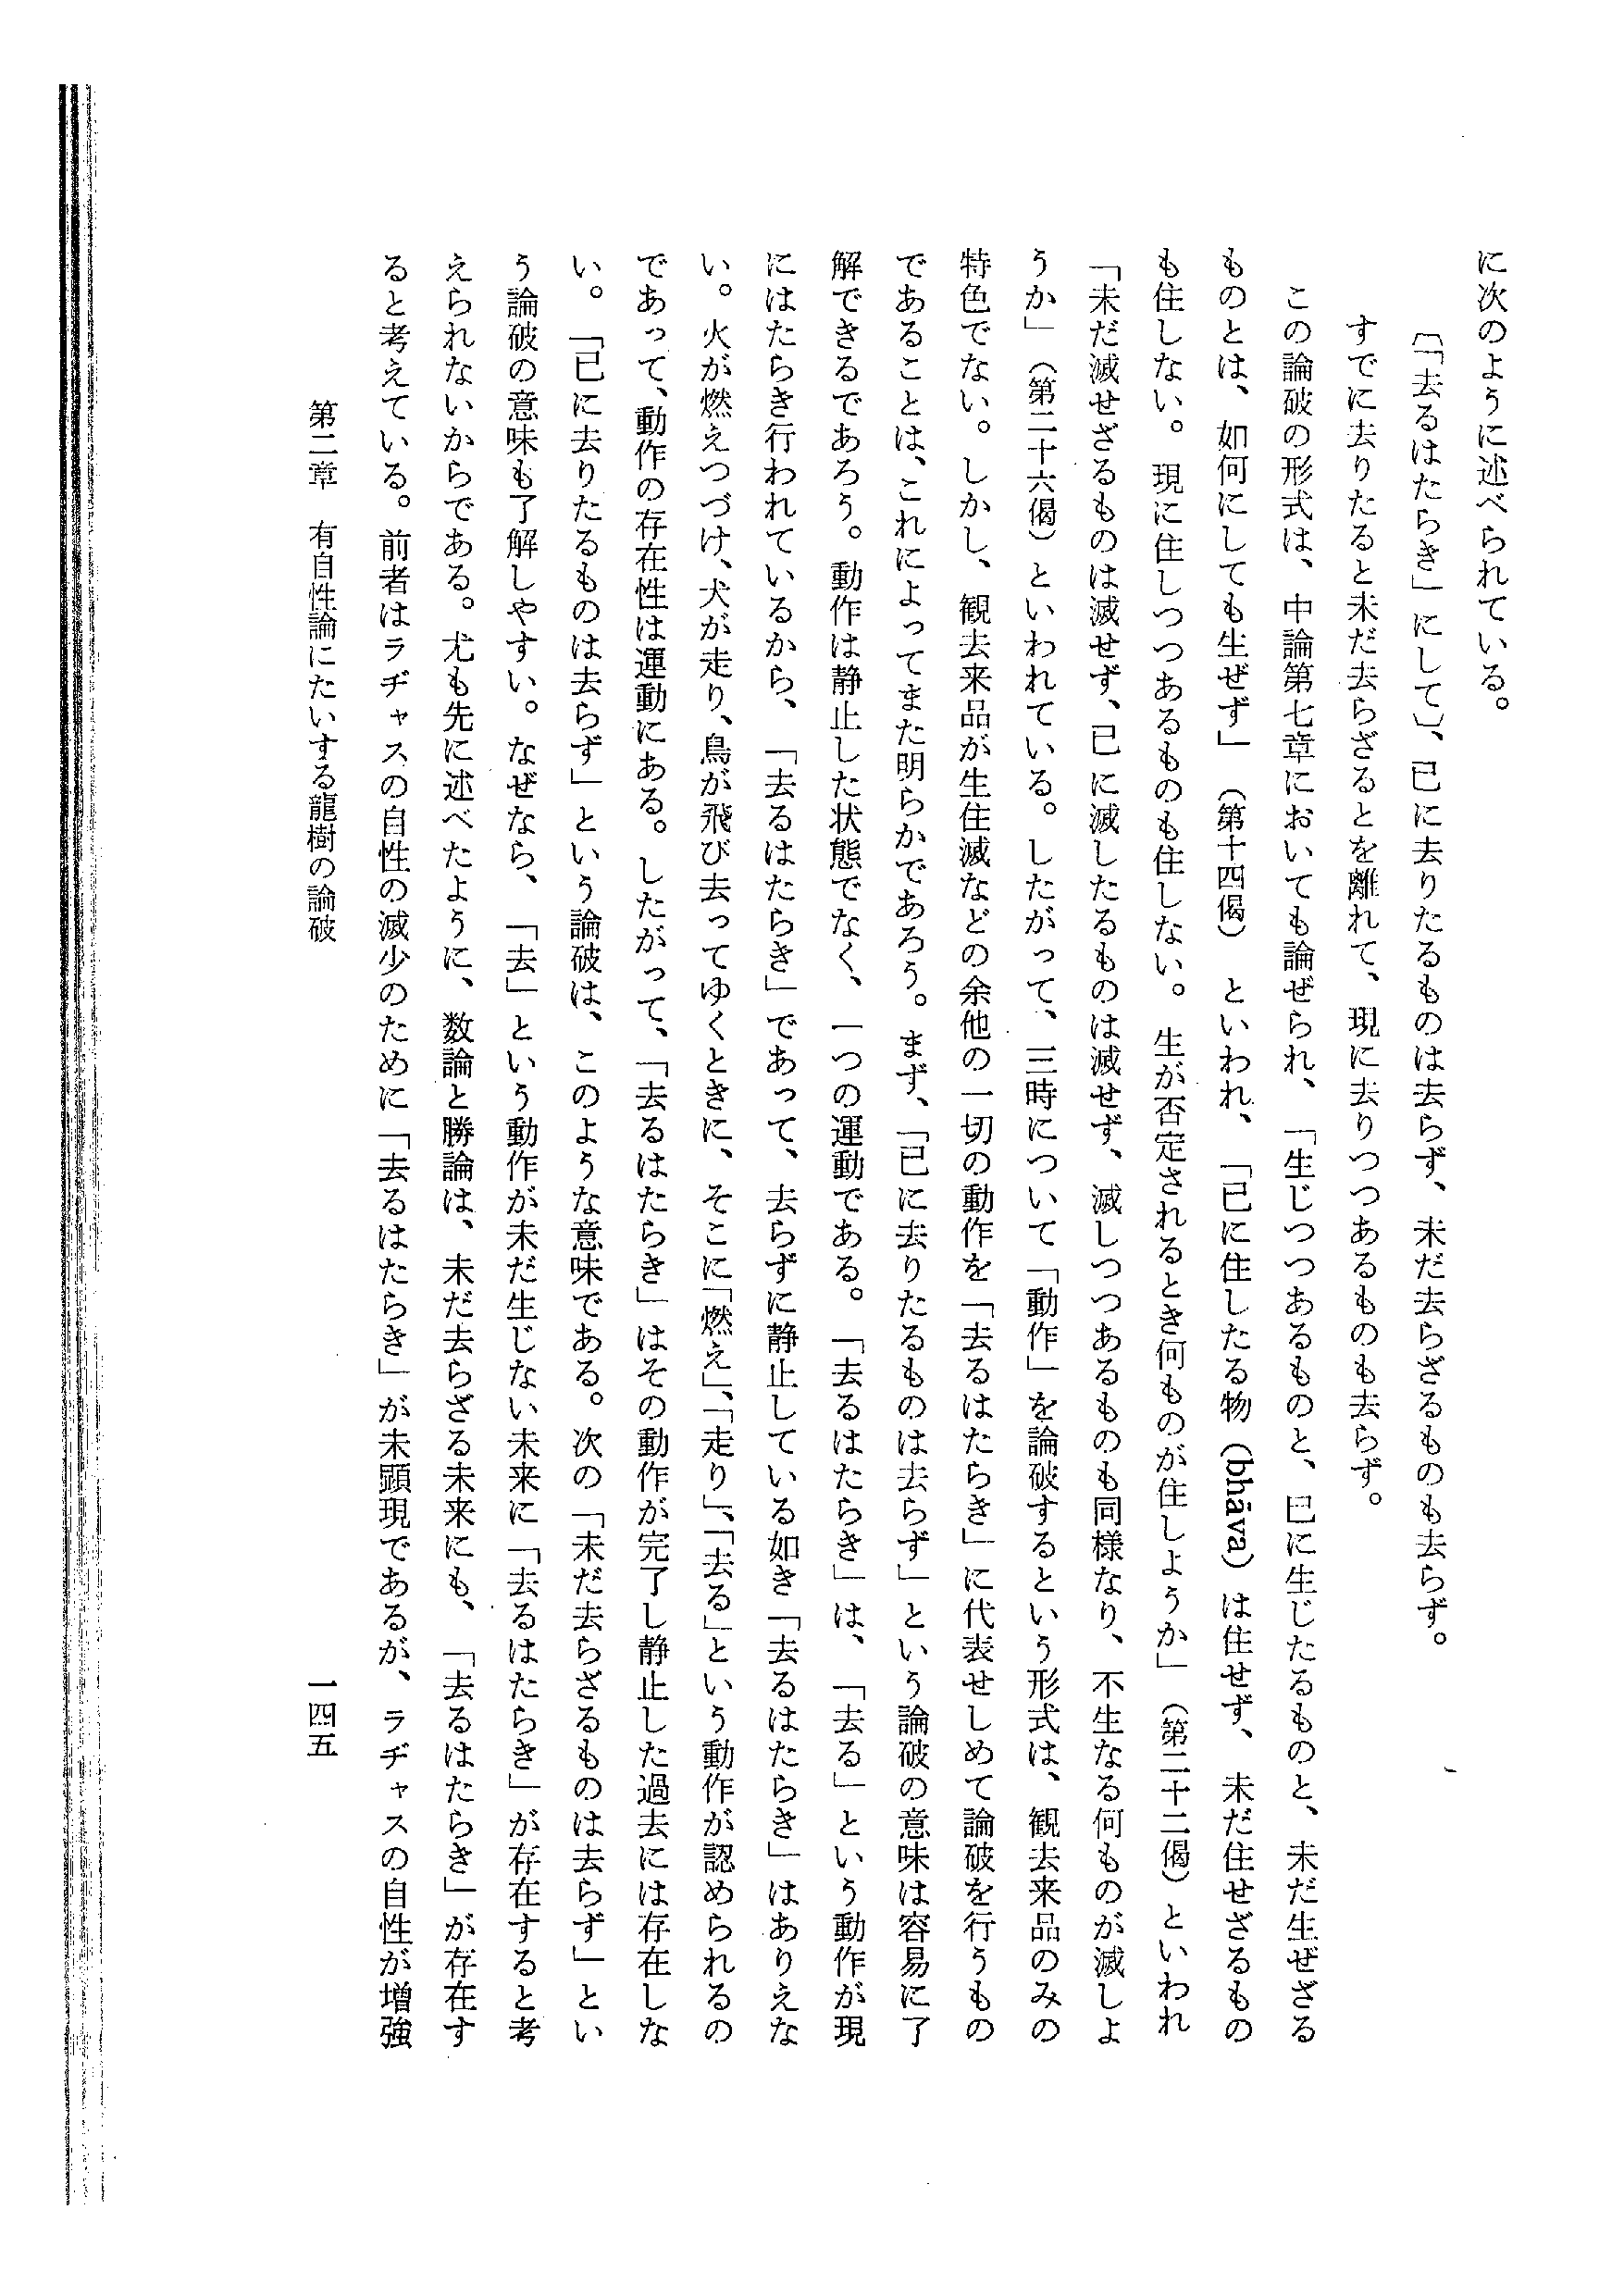 に次のように述べられている。
〔「去るはたらき」にして〕、已に去りたるものは去らず、未だ去らざるものも去らず。
すでに去りたると未だ去らざるとを離れて、現に去りつつあるものも去らず。
この論破の形式は、中論第七章においても論ぜられ、「生じつつあるものと、已に生じたるものと、未だ生ぜざる
ものとは、如何にしても生ぜず」(第十四偈)といわれ、「已に住したる物(bhāva)は住せず、未だ住せざるもの
も住しない。現に住しつつあるものも住しない。生が否定されるとき何ものが住しようか」(第二十二偈)といわれ
「未だ滅せざるものは滅せず、已に滅したるものは滅せず、滅しつつあるものも同様なり、不生なる何ものが滅しよ
うか」(第二十六偈)といわれている。したがって、三時について「動作」を論破するという形式は、観去来品のみの
特色でない。しかし、観去来品が生住滅などの余他の一切の動作を「去るはたらき」に代表せしめて論破を行うもの
であることは、これによってまた明らかであろう。まず、「已に去りたるものは去らず」という論破の意味は容易に了
解できるであろう。動作は静止した状態でなく、一つの運動である。「去るはたらき」は、「去る」という動作が現
にはたらき行われているから、「去るはたらき」であって、去らずに静止している如き「去るはたらき」はありえな
い。火が燃えつづけ、犬が走り、鳥が飛び去ってゆくときに、そこに「燃え」、「走り」、「去る」という動作が認められるの
であって、動作の存在性は運動にある。したがって、「去るはたらき」はその動作が完了し静止した過去には存在しな
い。「已に去りたるものは去らず」という論破は、このような意味である。次の「未だ去らざるものは去らず」とい
う論破の意味も了解しやすい。なぜなら、「去」という動作が未だ生じない未来に「去るはたらき」が存在すると考
えられないからである。尤も先に述べたように、数論と勝論は、未だ去らざる未来にも、「去るはたらき」が存在す
ると考えている。前者はラヂャスの自性の滅少のために「去るはたらき」が未顕現であるが、ラヂャスの自性が増強
第二章 有自性論にたいする龍樹の論破 一四五